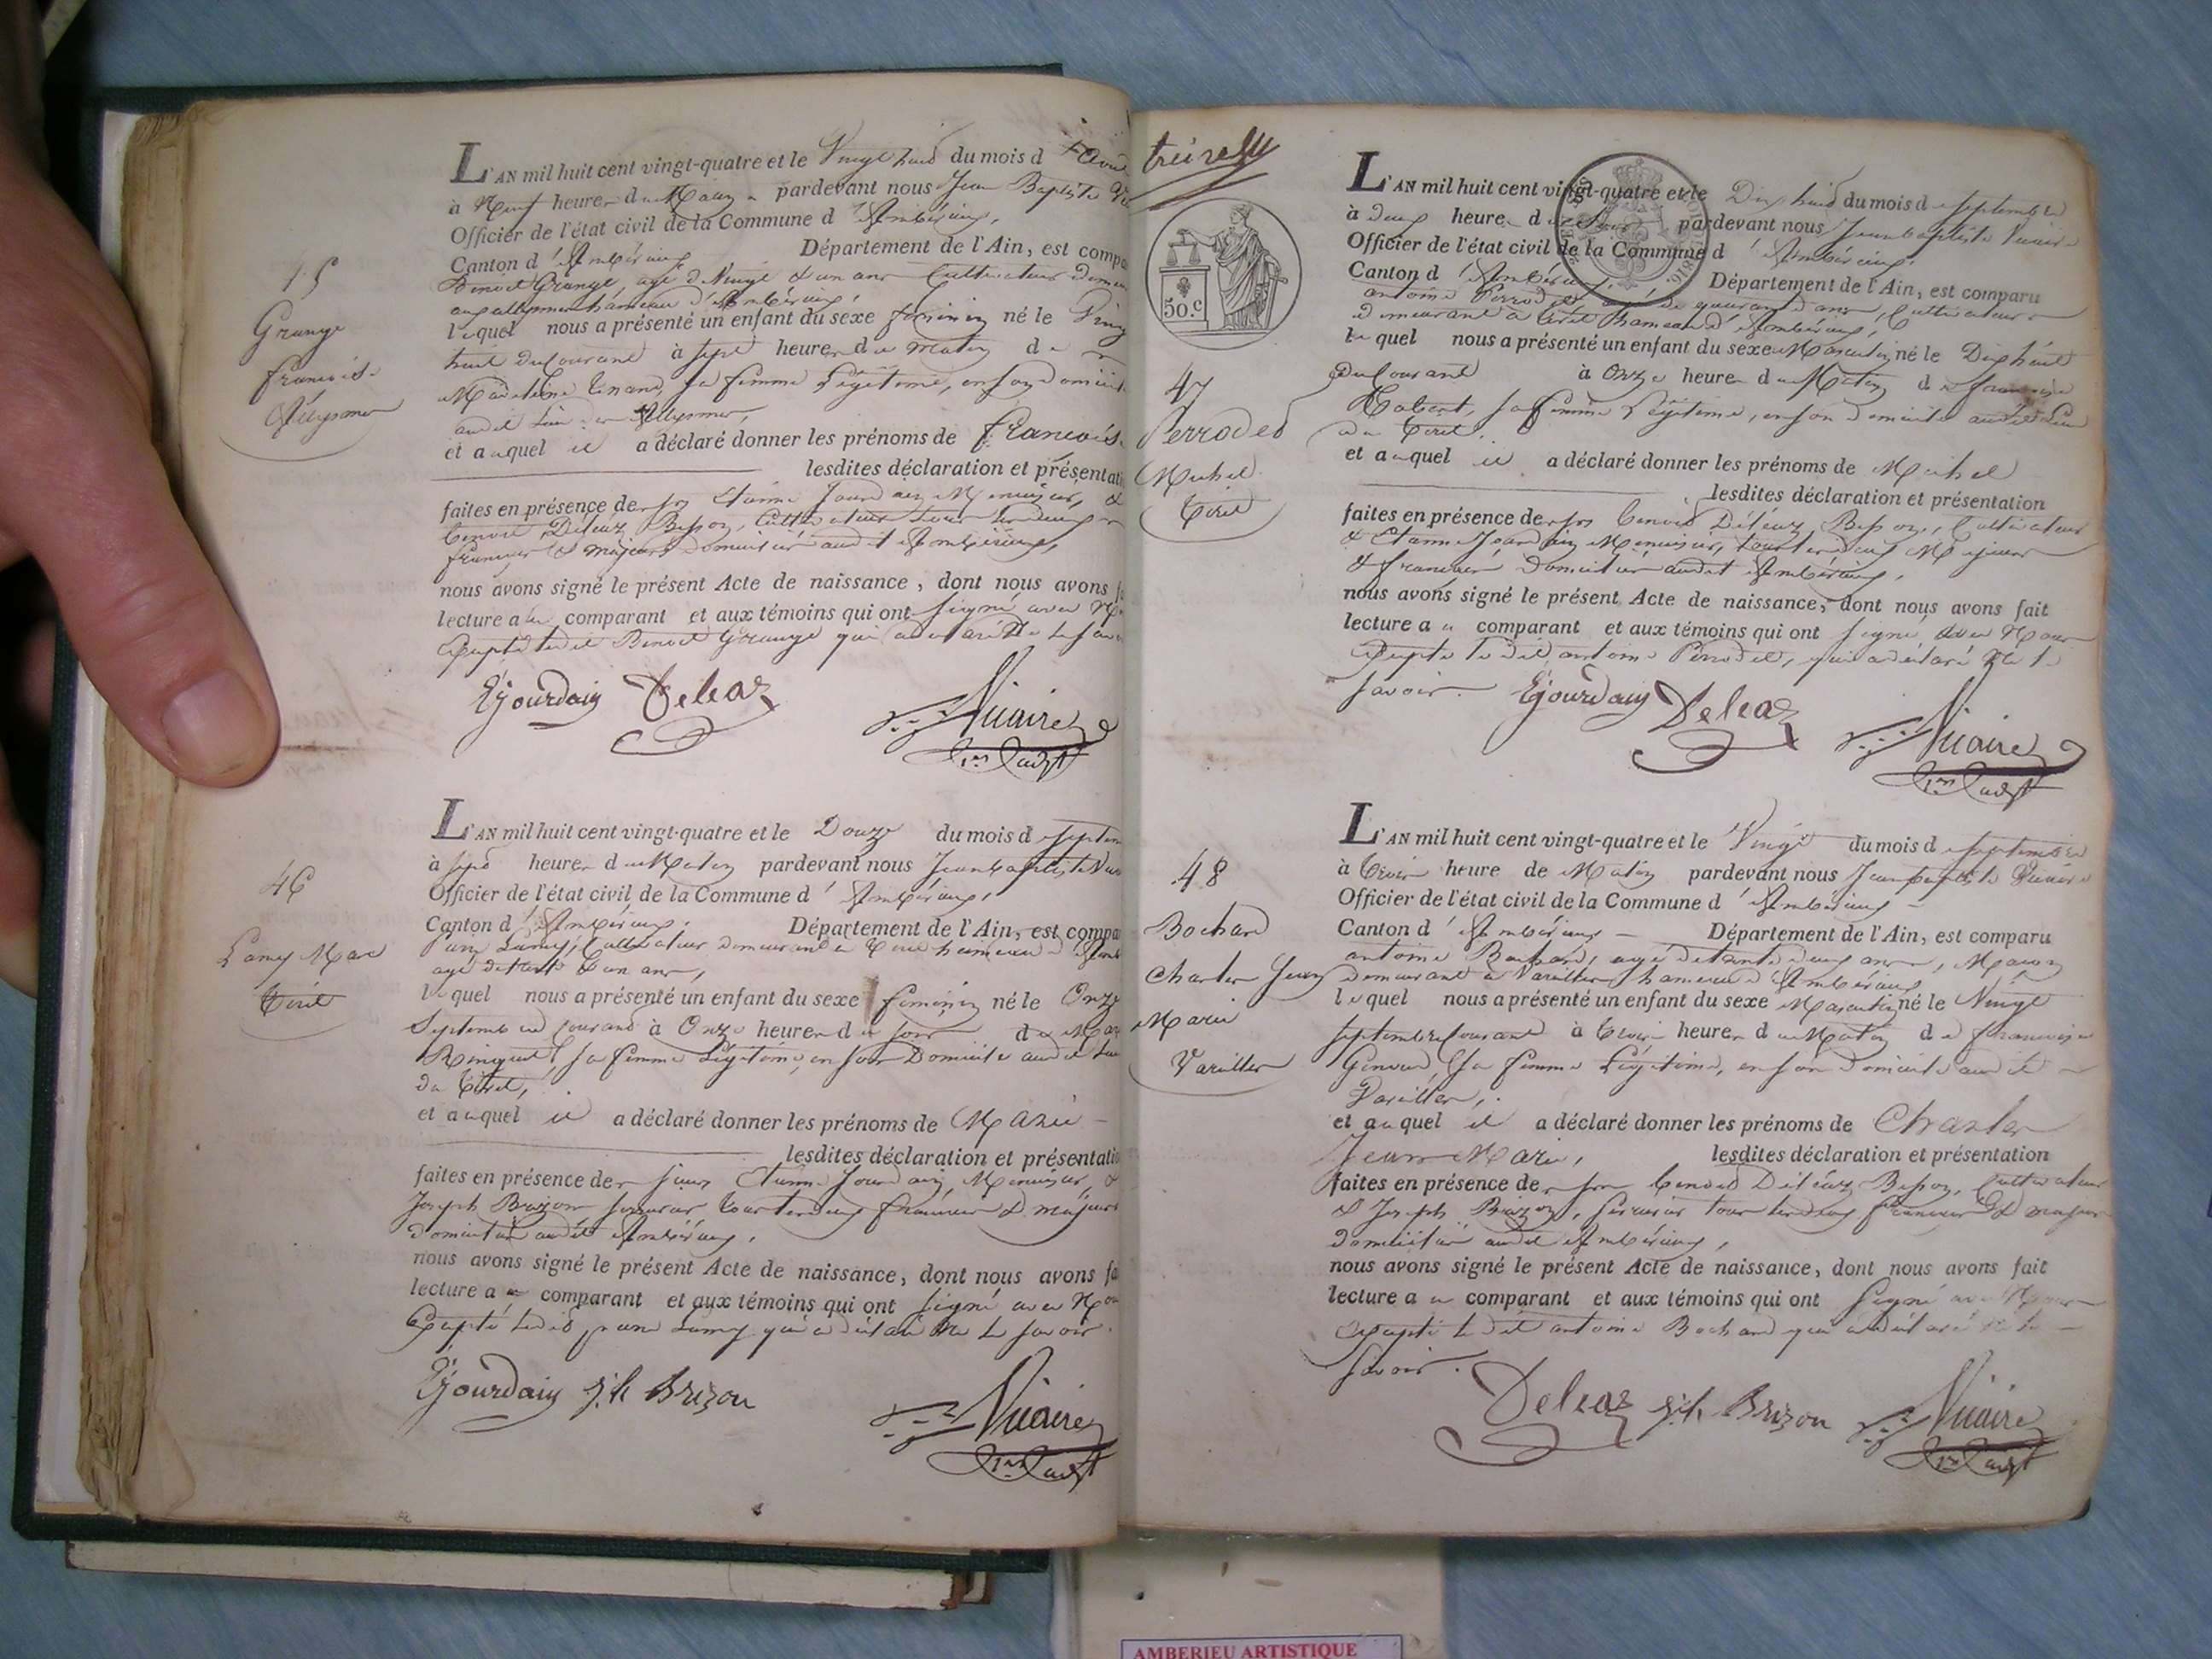 45
Grange
françoise
L'AN mil huit cent vingt-quatre et le Vingt huit du mois d'août
à Neuf heures du Matin pardevant nous Jean Baptiste
Officier de l'état civil de la Commune d'Ambérieux,
Canton d'Ambérieux Département de l'Ain, est compa
Benoit Grange, agé de Vingt & un ans Cultivateur
hameau d'Ambérieux,
lequel nous a présenté un enfant du sexe feminin né le Vingt
huit du Courant à sept heures du matin de
Madeleine sa femme Légitime, en son domicile
audit Lieu
et auquel il a déclaré donner les prénoms de françoise
lesdites déclaration et présentati
faites en présence des srs Etienne Jourdain Menuisier, &
Benoit Déléaz Besson, Cultivateur tous les deux
français & majeurs Domiciliés audit Ambérieux,
nous avons signé le présent Acte de naissance, dont nous avons f
lecture au comparant et aux témoins qui ont signé avec Nous
Excepté ledit Benoit Grange qui a déclaré Ne le savoir
EJourdain Deleaz Vicaire
46
Lamy Marie
Tiret
L'AN mil huit cent vingt-quatre et le Douze du mois de septem
à sept heures du Matin pardevant nous Jean baptiste
Officier de l'état civil de la Commune d'Ambérieux,
Canton d'Ambérieux. Département de l'Ain, est compa
Lamy, Cultivateur demeurant à Tiret hameau d'Amb
agé de trente & un ans,
lequel nous a présenté un enfant du sexe feminin né le Onze
Septembre courant à Onze heures du soir de Marie
sa femme Légitime, en son Domicile audit Lieu
du Tiret,
et auquel il a déclaré donner les prénoms de Marie
lesdites déclaration et présentatio
faites en présence des sieurs Etienne Jourdain, Menuisier, &
Joseph Brizon serrurier tous les deux français & majeurs
domiciliés audit Ambérieux,
nous avons signé le présent Acte de naissance, dont nous avons fa
lecture au comparant et aux témoins qui ont signé avec Nous
Excepté ledit Lamy qui a déclaré Ne le savoir.
EJourdain Jh Brizon Vicaire
treize
50.c
47
Perrodet
Michel
Tiret
L'AN mil huit cent vingt-quatre et le Dix huit du mois de septembre
à deux heures du Soir pardevant nous Jean baptiste Vicaire
Officier de l'état civil de la Commune d'Ambérieux.
Canton d'Ambérieux, Département de l'Ain, est comparu
antoine Perrodet, agé de quarante ans, Cultivateur
demeurant à Tiret hameau d'Ambérieux,
lequel nous a présenté un enfant du sexe Masculin né le Dix huit
du Courant à Onze heures du Matin de françoise
sa femme Légitime, en son domicile audit Lieu
du Tiret.
et auquel il a déclaré donner les prénoms de Michel
lesdites déclaration et présentation
faites en présence des srs benoit Déléaz Besson, Cultivateur
& Etienne Jourdain Menuisier, tous les deux Majeurs
& français domiciliés audit Ambérieux,
nous avons signé le présent Acte de naissance, dont nous avons fait
lecture au comparant et aux témoins qui ont signé avec Nous
Excepté ledit antoine Perrodet, qui a déclaré Ne le
savoir. EJourdain Deleaz Vicaire
48
Bochard
Charles Jean
Marie
Vareilles
L'AN mil huit cent vingt-quatre et le Vingt du mois de septembre
à trois heure de Matin pardevant nous Jean baptiste Vicaire
Officier de l'état civil de la Commune d'Ambérieux
Canton d'Ambérieux Département de l'Ain, est comparu
antoine Bochard, agé de trente deux ans, Maçon
demeurant à Vareilles hameau d'Ambérieux
lequel nous a présenté un enfant du sexe Masculin né le Vingt
septembre Courant à trois heures du Matin de françoise
sa femme Légitime, en son domicile audit
Vareilles,
et auquel il a déclaré donner les prénoms de Charles
Jean Marie, lesdites déclaration et présentation
faites en présence des srs benoit Déléaz Besson, Cultivateur
& Joseph Brizon, serrurier tous les deux français & majeurs
domiciliés audit Ambérieux,
nous avons signé le présent Acte de naissance, dont nous avons fait
lecture au comparant et aux témoins qui ont signé avec Nous
Excepté ledit antoine Bochard qui a déclaré ne le
savoir.
Deleaz Jh Brizon Vicaire
AMBERIEU ARTISTIQUE